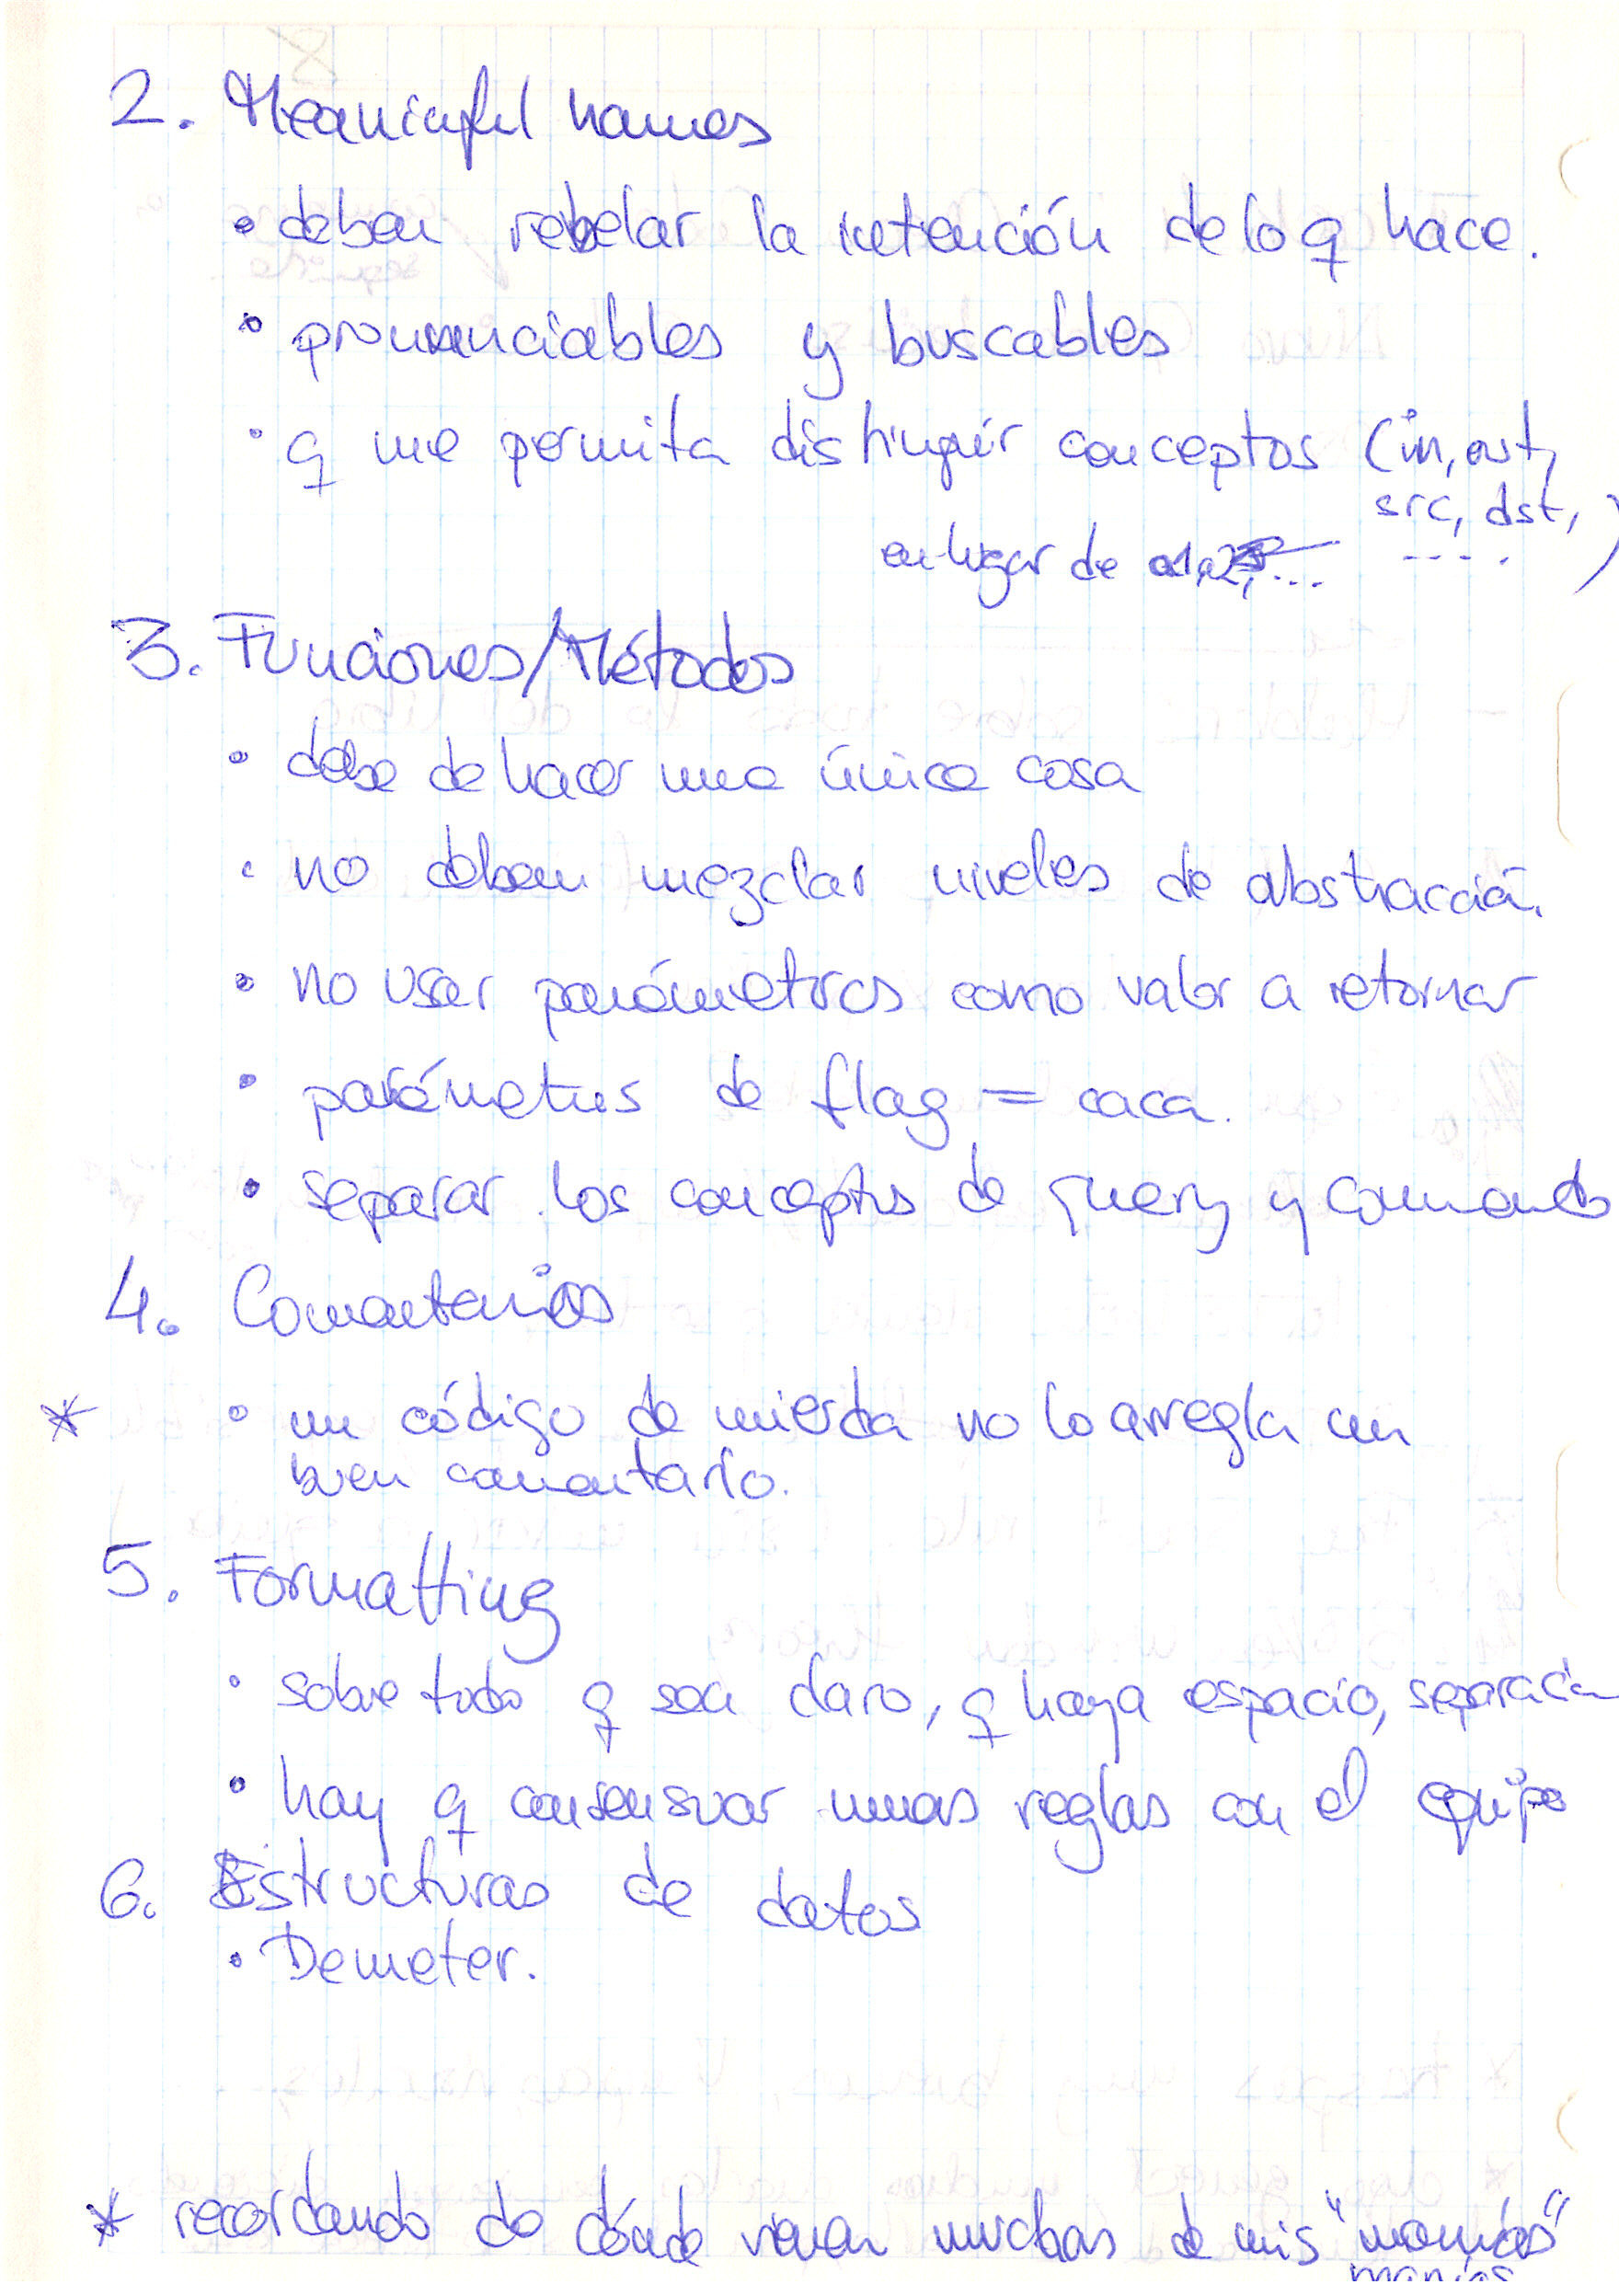 2. Meaningful names
• deben rebelar la intención de lo q hace.
• pronunciables y buscables
• q me permita distinguir conceptos (in, out,
src, dst,
en lugar de a1, a2, ... ....)
3. Funciones/Métodos
• debe de hacer una única cosa
• no deben mezclar niveles de abstracción.
• no usar parámetros como valor a retornar
• parámetros de flag = caca.
• separar los conceptos de query y comando
4. Comentarios
* • un código de mierda no lo arregla un
buen comentario.
5. Formatting
• sobre todo q sea claro, q haya espacio, separación
• hay q consensuar unas reglas con el equipo
6. Estructuras de datos
• Demeter.
* recordando de dónde vienen muchas de mis "manías"
manías